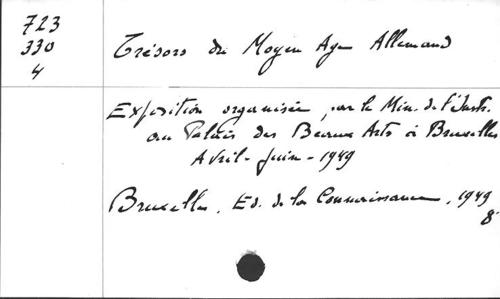 723
330
4
Trésors du Moyen Age Allemand
Exposition organisée par le Min. de l'Instr.
au Palais des Beaux Arts à Bruxelles
Avril - juin - 1949
Bruxelles, Ed. de la Connaissance, 1949
8°